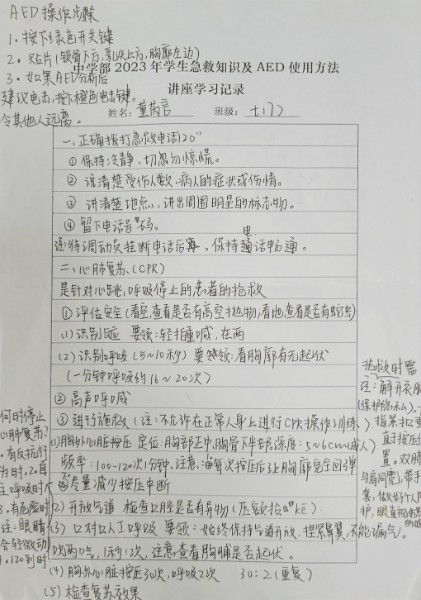 AED操作步骤
1. 按下绿色开关键
2. 贴片(锁骨下方,乳头上方,胸廓左边)
3. 如果AED分析后
建议电击,按下橙色电击键。
令其他人远离。
中学部 2023 年学生急救知识及 AED 使用方法
讲座学习记录
姓名: 董芮言 班级: 七17
一、正确拨打急救电话120"
① 保持冷静、切忽惊慌。
② 说清楚受伤人数、病人的症状或伤情。
③ 讲清楚地点、讲出周围明显的标志物。
④ 留下电话号码。
待调动员挂断电话后再,保持通话畅通。
二、心肺复苏、(CPR)
是针对心跳,呼吸停止的患者的抢救
① 评估安全(看空,查看是否有高空抛物;看地,查看是否有蛇虫)
(1) 识别 要领:轻拍重喊,在两
(2) 识别呼吸(5~10秒) 要领:看胸廓有无起伏
(一分钟呼吸约16~20次)
② 高声呼喊
③ 进行施救(注:不允许在正常人身上进行CPR操作训练)
(1)胸外心脏按压 定位:胸部正中,胸骨下半段,深度:5~6cm(成人)
频率:100-120次/分钟.注意:每次按压后让胸廓完全回弹
尽量减少按压中断
(2) 开放气道 检查口腔是否有异物
(3) 口对口人工呼吸 要领:始终保持气道开放.捏紧鼻翼,不能漏气。
吹两口气,1秒1次,注意查看胸脯是否起伏。
(4) 胸外心脏按压30次,呼吸2次 30:2(重复)
(5) 检查复苏效果
何时停止
心肺复苏?
有反抗行
为时.2.有
呼吸时
3.有危险时
注:眼睛
会轻微动
120到时
抢救时需
注:解开衣服
直接按压